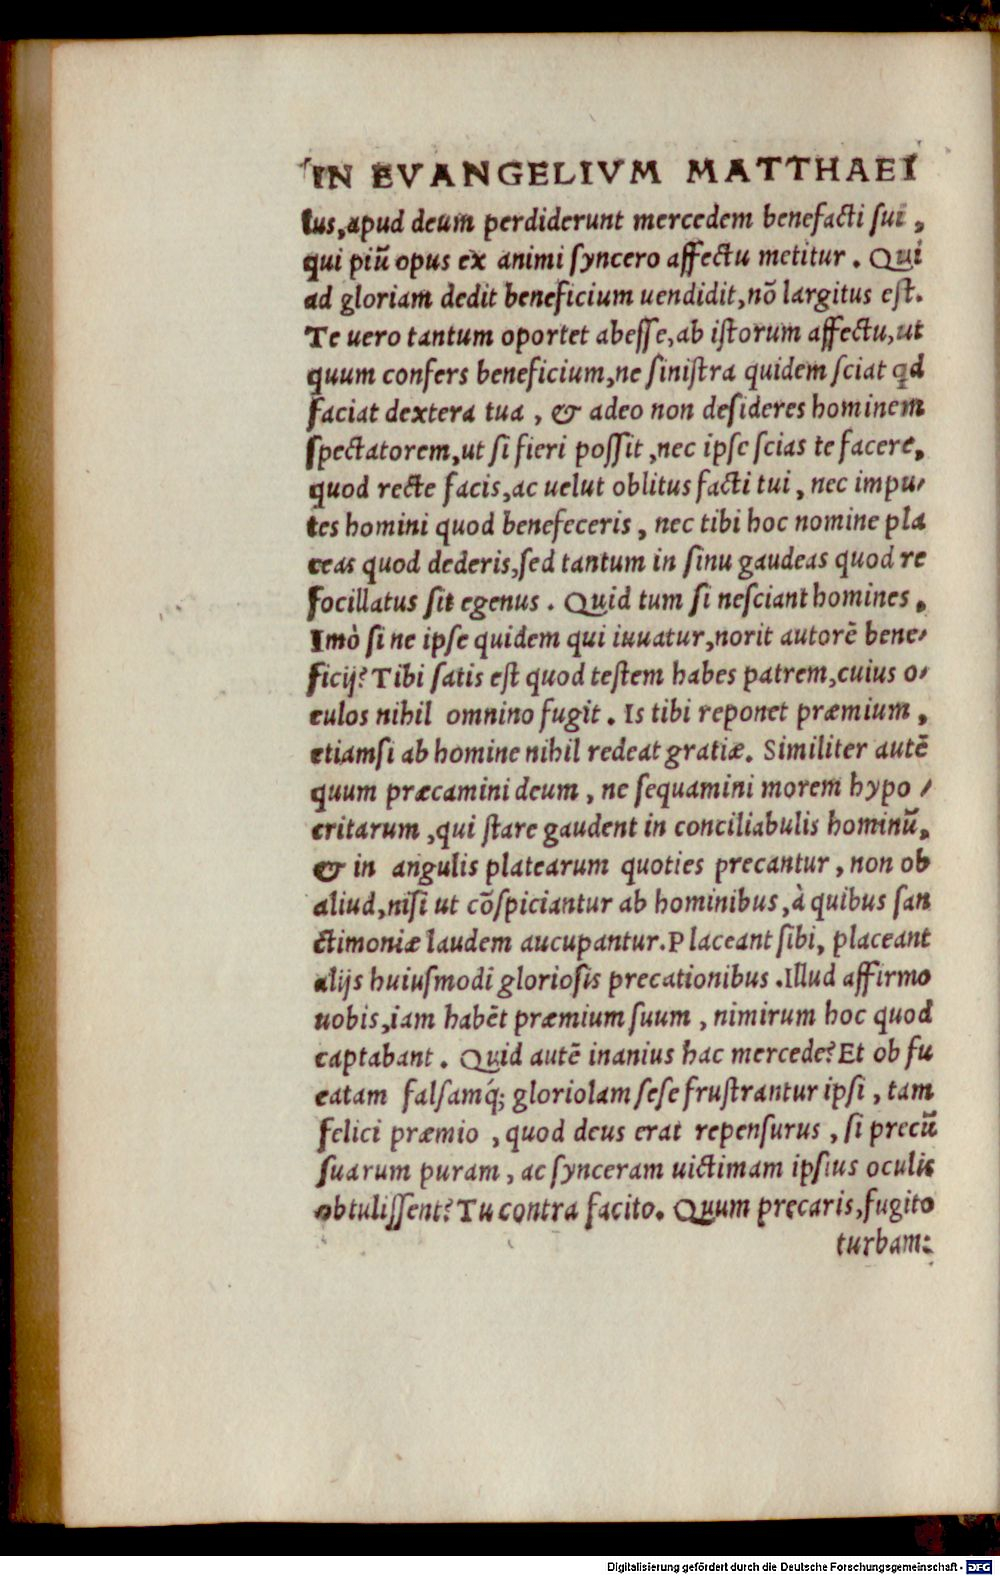 IN EVANGELIVM MATTHAEI
lus,apud deum perdiderunt mercedem benefacti sui ,
qui piū opus ex animi syncero affectu metitur . Qui
ad gloriam dedit beneficium uendidit,nō largitus est.
Te uero tantum oportet abesse,ab istorum affectu,ut
quum confers beneficium,ne sinistra quidem sciat qd
faciat dextera tua , & adeo non desideres hominem
spectatorem,ut si fieri possit ,nec ipse scias te facere,
quod recte facis,ac uelut oblitus facti tui , nec impu-
tes homini quod benefeceris , nec tibi hoc nomine pla
ceas quod dederis,sed tantum in sinu gaudeas quod re
focillatus sit egenus . Quid tum si nesciant homines ,
Imò si ne ipse quidem qui iuuatur,norit autorē bene-
ficij? Tibi satis est quod testem habes patrem,cuius o-
culos nihil omnino fugit . Is tibi reponet præmium ,
etiamsi ab homine nihil redeat gratiæ. Similiter autē
quum præcamini deum , ne sequamini morem hypo -
critarum ,qui stare gaudent in conciliabulis hominū,
& in angulis platearum quoties precantur , non ob
aliud,nisi ut cōspiciantur ab hominibus ,à quibus san
ctimoniæ laudem aucupantur.Placeant sibi, placeant
alijs huiusmodi gloriosis precationibus .Illud affirmo
uobis,iam habēt præmium suum , nimirum hoc quod
captabant . Quid autē inanius hac mercede? Et ob fu
catam falsamq́; gloriolam sese frustrantur ipsi , tam
felici præmio , quod deus erat repensurus , si precū
suarum puram , ac synceram uictimam ipsius oculis
obtulissent? Tu contra facito. Quum precaris,fugito
turbam:
Digitalisierung gefördert durch die Deutsche Forschungsgemeinschaft - DFG